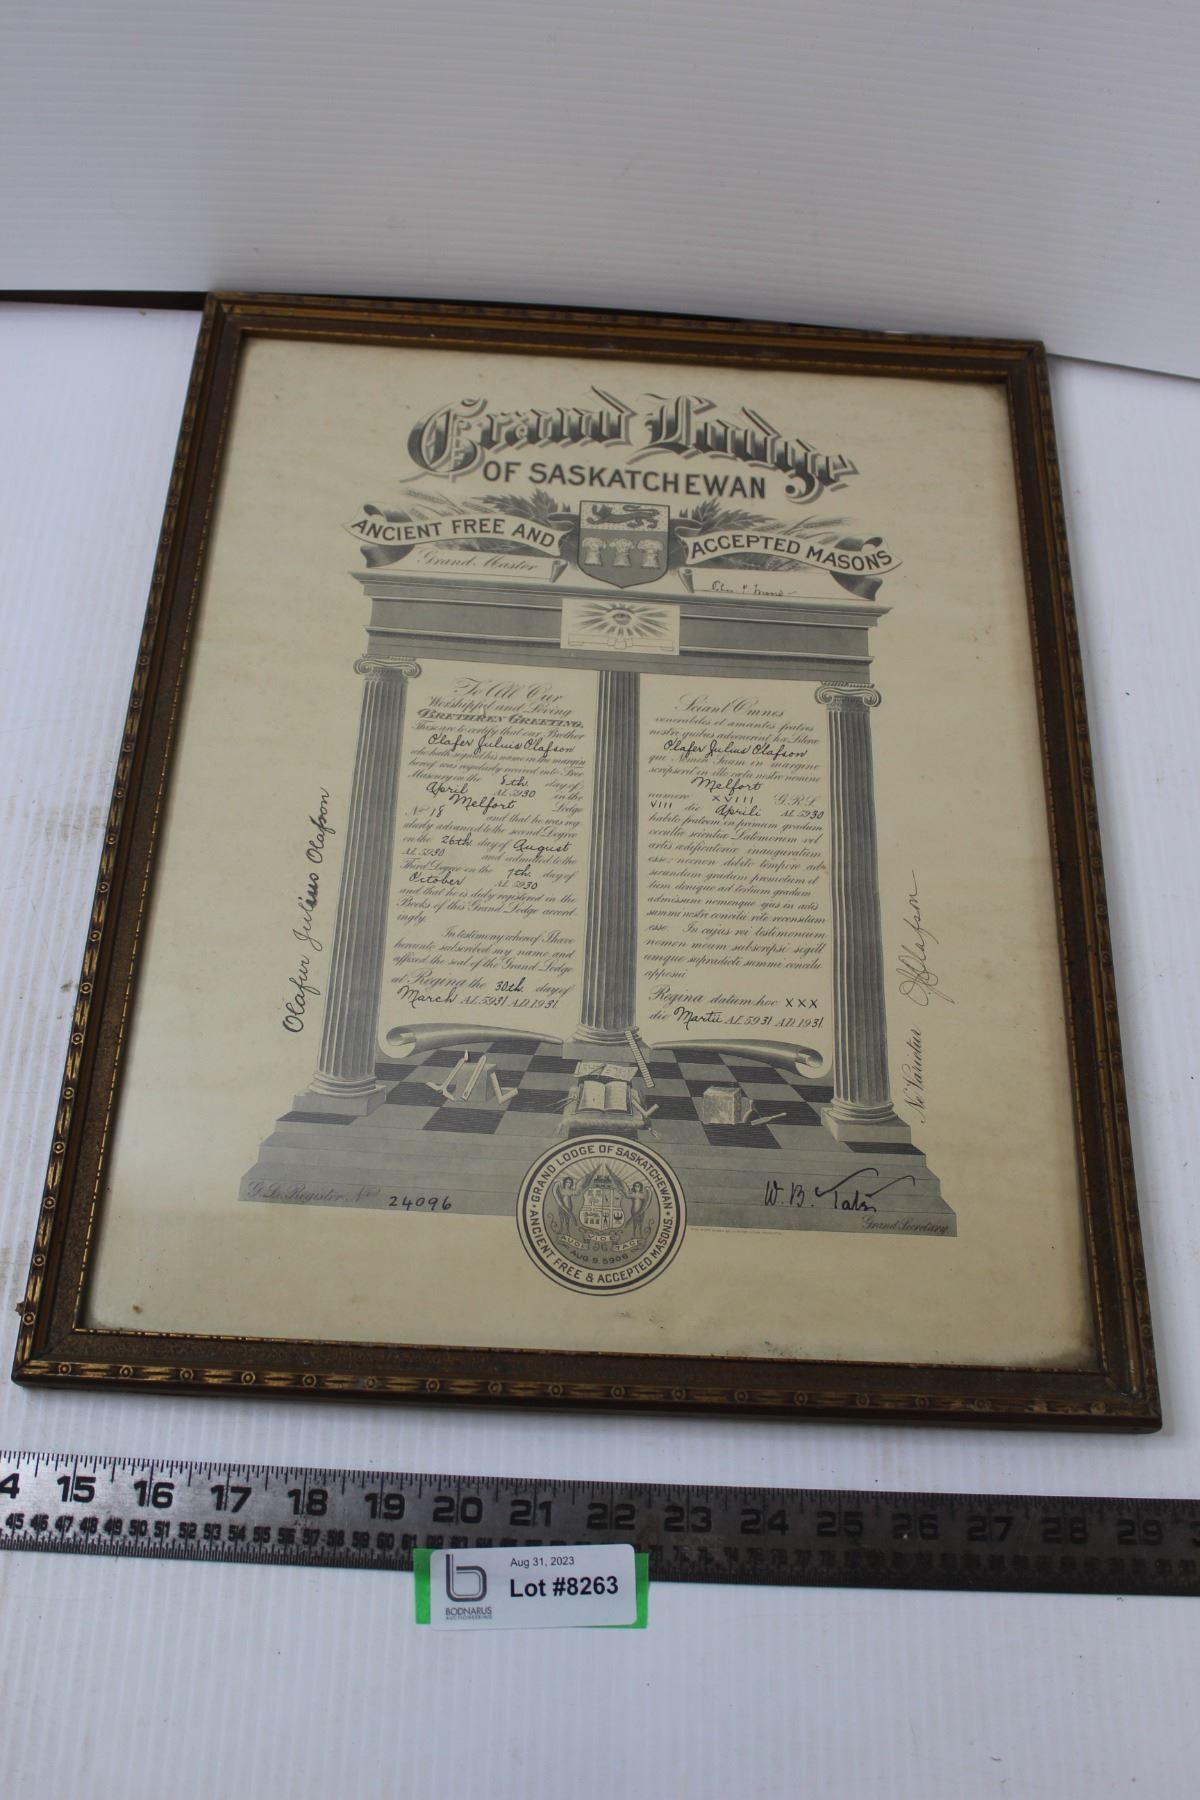 Grand Lodge
OF SASKATCHEWAN
ANCIENT FREE AND
ACCEPTED MASONS
Grand Master
To All Our
Worshipful and Loving
BRETHREN GREETING.
These are to certify that our Brother
Olafer Julius Olafson
who hath signed his name in the margin
hereof was regularly received into Free
Masonry on the 8th day of
April AL 5930 in the
Melfort Lodge
No 18 and that he was reg-
ularly advanced to the second Degree
on the 26th day of August
AL 5930 and admitted to the
Third Degree on the 7th day of
October AL 5930
and that he is duly registered in the
Books of this Grand Lodge accord-
ingly.
In testimony whereof I have
hereunto subscribed my name and
affixed the seal of the Grand Lodge
at Regina the 30th day of
March AL 5931 AD 1931.
Sciant Omnes
venerabiles et amantes fratres
nostri quibus advenerint hæ Literæ
Olafer Julius Olafson
qui Nomen Suum in margine
scripserit in illo cætu nostro nomine
Melfort
numero XVIII G.R.S.
VIII die Aprili AL 5930
habito fratrem in primum gradum
occultæ scientiæ Latomorum vel
artis ædificatoriæ inauguratum
esse: necnon debito tempore ad
secundum gradum promotum et
tum denique ad tertium gradum
admissum nomenque ejus in actis
summi nostri concilii rite recensitum
esse. In cujus rei testimonium
nomen meum subscripsi sigill
umque supradicti summi concilii
apposui
Regina datum hoc XXX
die Martii AL 5931 AD 1931.
Olafur Julius Olafson
Ne Varietur OJ Olafson
G. L. Register No 24096
GRAND LODGE OF SASKATCHEWAN
ANCIENT FREE & ACCEPTED MASONS
AUDI VIDE TACE
AUG. 9. 5906
W. B. Tate
Grand Secretary
4 15 16 17 18 19 20 21 22 23 24 25 26 27 28 29
45 46 47 48 49 50 51 52 53 54 55 56 57 58 59 60
b
BODNARUS
AUCTIONEERING
Aug 31, 2023
Lot #8263